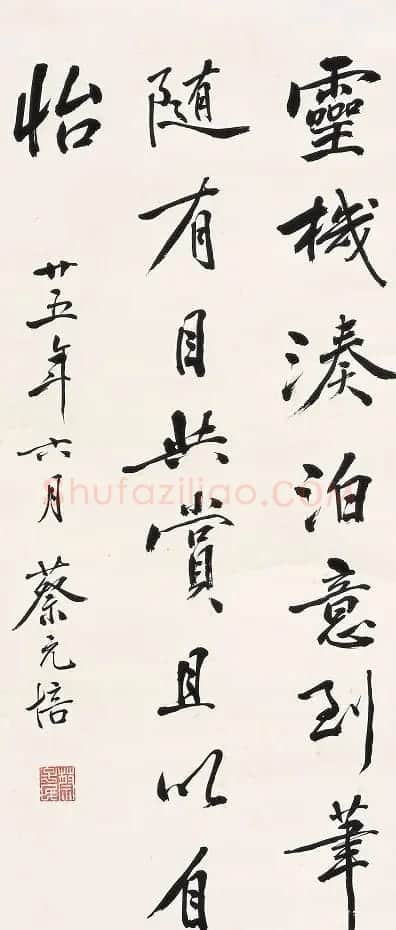 靈機湊泊意到筆
隨有目共賞且以自
怡
廿五年六月蔡元培
Shufaziliao.COM